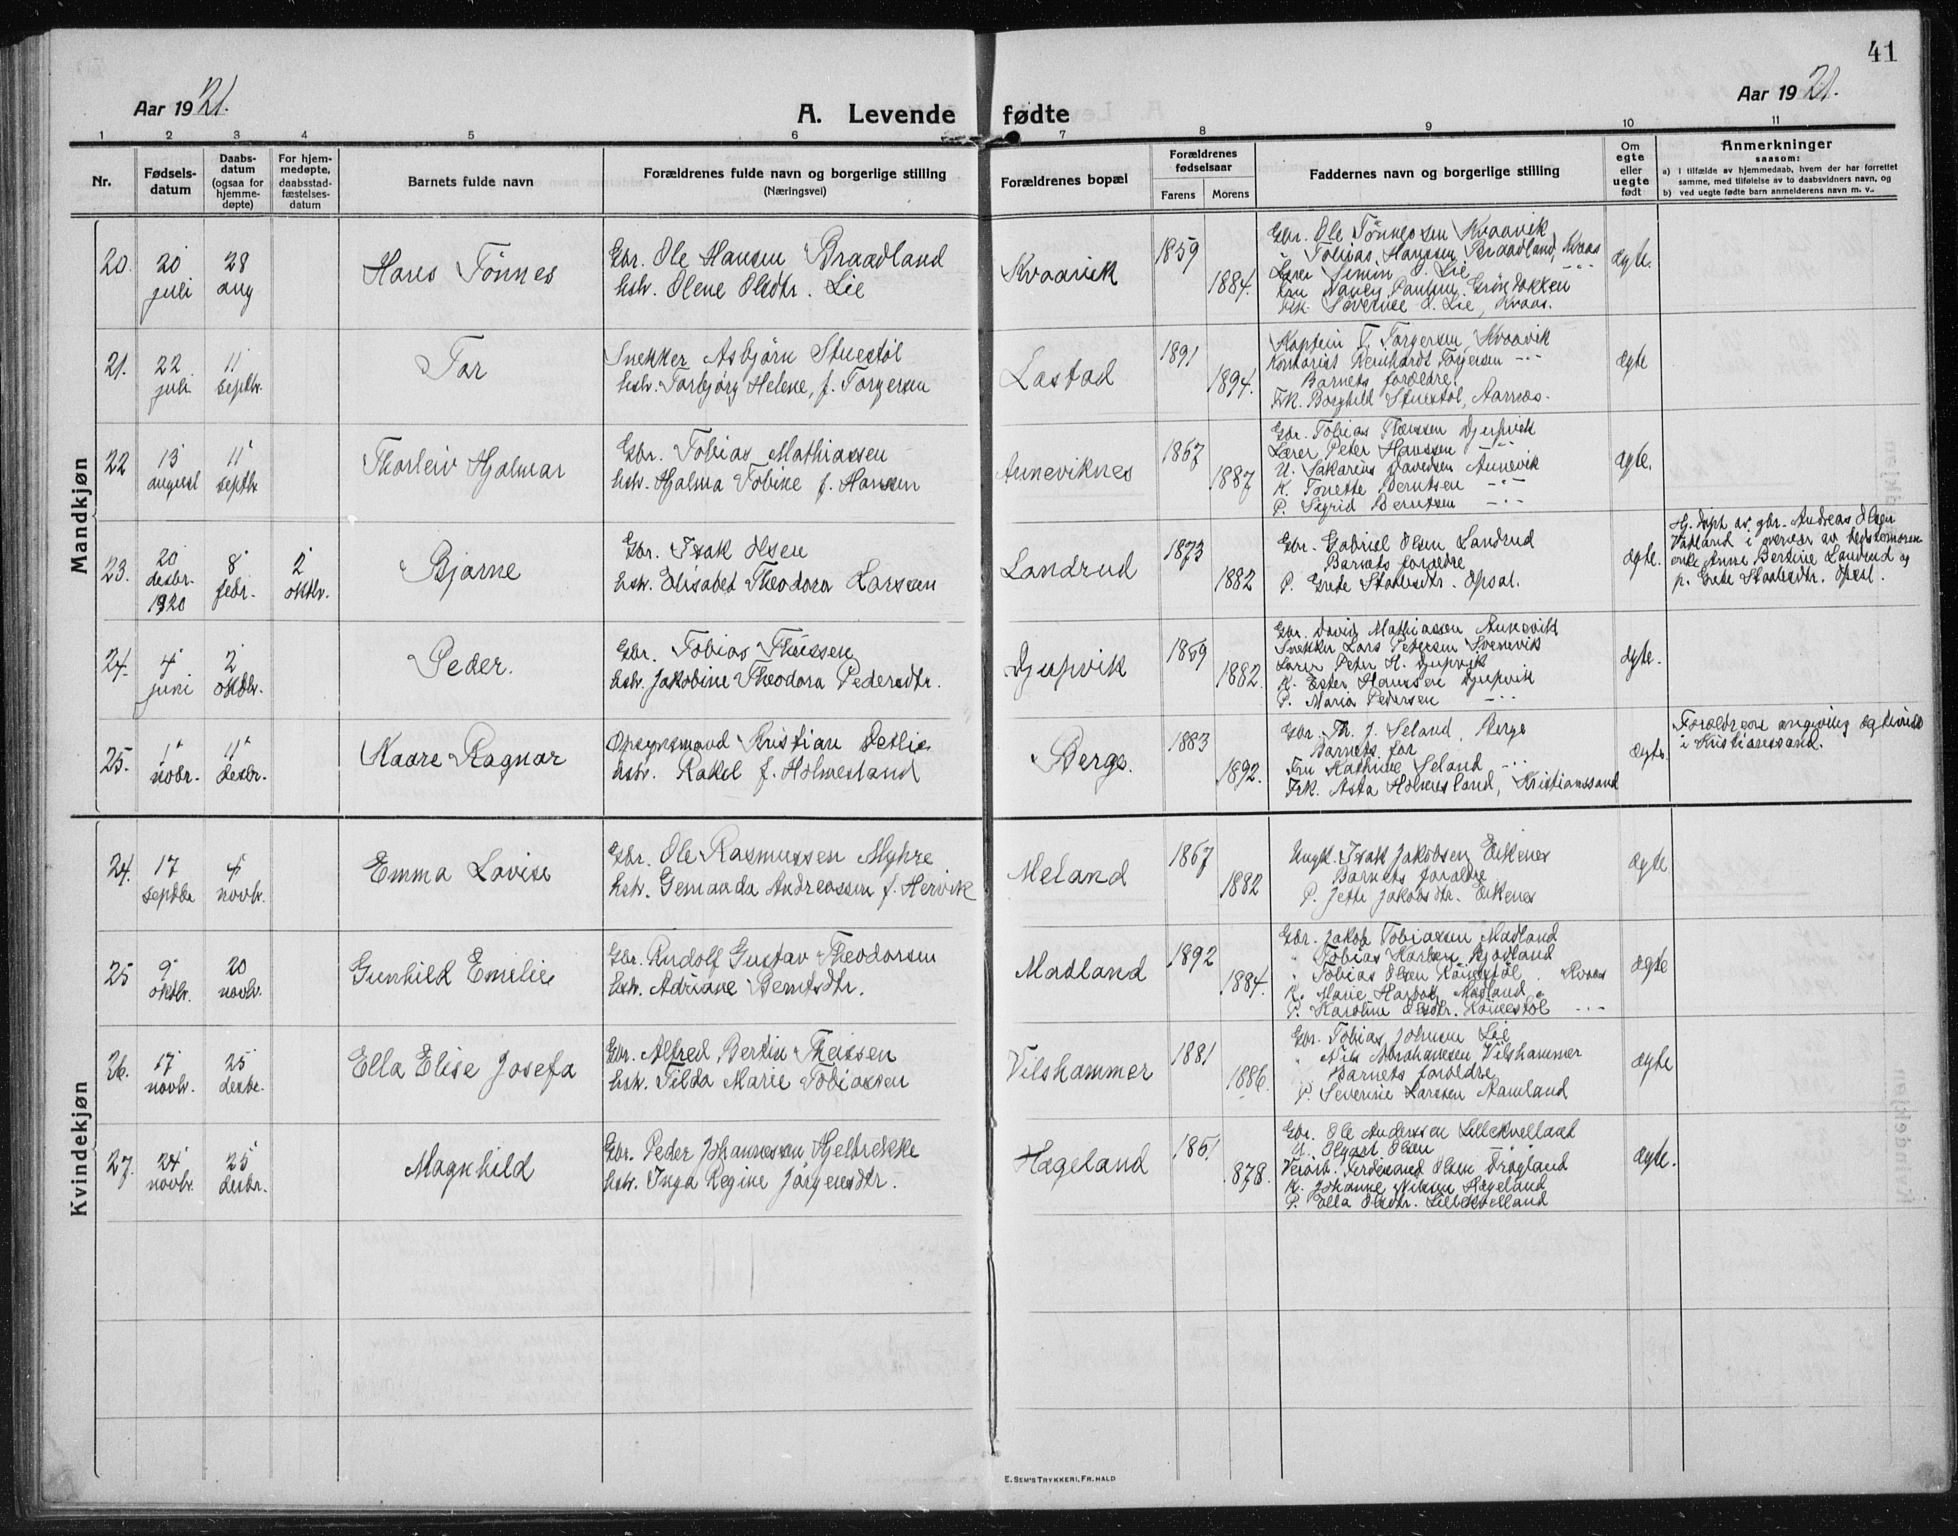 41
Aar 1921.
A. Levende fødte
Aar 1921.
1 2 3 4 5 6 7 8 9 10 11
Nr.
Fødsels-
datum
Daabs-
datum
(ogsaa for
hjemme-
døpte)
For hjem-
medøpte,
daabsstad-
fæstelses-
datum
Barnets fulde navn
Forældrenes fulde navn og borgerlige stilling
(Næringsvei)
Forældrenes bopæl
Forældrenes
fødselsaar
Farens Morens
Faddernes navn og borgerlige stilling
Om
egte
eller
uegte
født
Anmerkninger
saasom:
a) I tilfælde av hjemmedaab, hvem der har forrettet
samme, med tilføielse av to daabsvidners navn, og
b) ved uegte fødte barn anmelderens navn m. v..
Mandkjøn
20.
20
juli
28
aug
Hans Tønnes
Gbr. Ole Hansen Braadland
hstr. Olene Olsdtr. Lie
Kvaavik
1859
1884.
Gbr. Ole Tønnessen Kvaavik
" Tobias Hanssen Braadland, Kvaas
Lærer Simon O. Lie -"-
Fru Nancy Paulsen, Grøndokken
Frk. Severine O. Lie, Kvaas.
ægte.
21.
22
juli
11
septbr.
Tor
Snekker Asbjørn Stuestøl
hstr. Torbjørg Helene, f. Torgersen
Lastad
1891
1894.
Kaptein T. Torgersen, Kvaavik
Kontorist Reinhardt Torgersen -"-
Barnets forældre.
Frk. Borghild Stuestøl, Aarnæs.
ægte
22
13
august
11
septbr
Thorleiv Hjalmar
Gbr. Tobias Mathiassen
hstr. Hjalma Tobine f. Hansen
Auneviknes
1867
1887
Gbr. Tobias Theissen Djupvik
Lærer Peter Hanssen -"-
U. Sakarias Davidsen Aunevik
K. Tonette Berntsen -"-
P. Sigrid Berntsen -"-
ægte.
23.
20
desbr.
1920
8
febr.
2
oktbr.
Bjarne
Gbr. Isak Olsen
hstr. Elisabet Theodora Larssen
Landrud
1873
1882
Gbr. Gabriel Olsen Landrud
Barnets forældre
P. Grete Staalesdtr. Opsal.
ægte.
Hj. døpt av gbr. Andreas Olsen
Vatland i overvær av
enke Anne Bertine Landrud og
p. Grete Staalesdtr. Opsal.
24.
4
juni
2
oktbr.
Peder.
Gbr. Tobias Theissen
hstr. Jakobine Theodora Pedersdtr.
Djupvik
1859
1882.
Gbr. David Mathiassen Aunevik
Snekker Lars Petersen Svenevik
Lærer Peter H. Djupvik
K. Ester Hanssen Djupvik
P. Maria Pedersen -"-
ægte.
25.
1
novbr.
11
desbr.
Kaare Ragnar
Opsynsmand Kristian Detlie
hstr. Rakel f. Holmesland
Berge.
1883
1892.
Gbr. Th. J. Seland, Berge
Barnets far
Fru Kathine Seland -"-
Frk. Asta Holmesland, Kristianssand
ægte.
Forældrene angivelig egteviede
i Kristianssand.
Kvindekjøn
24.
17
septbr
4
novbr.
Emma Lovise
Gbr. Ole Rasmussen Myhre
hstr. Gemanda Andreassen f. Hervik
Meland
1867
1882
Ungk. Isak Jakobsen Eikenes
Barnets forældre
P. Jette Jakobsdtr. Eikenes
ægte
25
9
oktbr.
20
novbr.
Gunhild Emilie
Gbr. Rudolf Gustav Theodorsen
hstr. Adriane Berntsdtr.
Madland
1892
1884.
Gbr. Jakob Tobiassen Madland
" Tobias Karlsen Bjodland
" Tobias Olsen Røinestøl. Kvaas
K. Marie Madland
P. Karoline Olsdtr. Røinestøl -"-
ægte
26.
17
novbr.
25
desbr.
Ella Elise Josefa
Gbr. Alfred Bertin Theissen
hstr. Tilda Marie Tobiassen
Vilshammer
1881
1886.
Gbr. Tobias Johnsen Lie
" Nils Abrahamsen Vilshammer
Barnets forældre
P. Severine Larssen Aamland
ægte
27.
24
novbr.
25
desbr.
Magnhild
Gbr. Peder Johannessen Hjelbrekke
hstr. Inga Regine Jørgensdtr.
Hægeland
1861
1878.
Gbr. Ole Anderssen Lillekvelland
U. Olgart Olsen
Verksarb. Ferdinand Olsen Frøgland
K. Johanne Nilssen Hægeland
P. Ella Olsdtr. Lillekvelland
ægte.
E. SEM'S TRYKKERI, FR. HALD